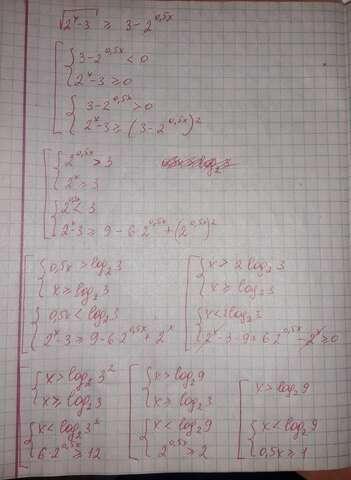 √(2^x-3) ≥ 3-2^0,5x
[ { 3-2^0,5x < 0
2^x-3 ≥ 0
{ 3-2^0,5x > 0
2^x-3 ≥ (3-2^0,5x)^2
[ { 2^0,5x > 3
2^x ≥ 3
{ 2^0,5x < 3
2^x-3 ≥ 9-6·2^0,5x+(2^0,5x)^2
[ { 0,5x > log_2 3
x ≥ log_2 3
{ 0,5x < log_2 3
2^x-3 ≥ 9-6·2^0,5x+2^x
[ { x > 2log_2 3
x ≥ log_2 3
{ x < 2log_2 3
2^x-3-9+6·2^0,5x-2^x ≥ 0
[ { x > log_2 3^2
x ≥ log_2 3
{ x < log_2 3^2
6·2^0,5x ≥ 12
[ { x > log_2 9
x ≥ log_2 3
{ x < log_2 9
2^0,5x ≥ 2
[ x > log_2 9
{ x < log_2 9
0,5x ≥ 1